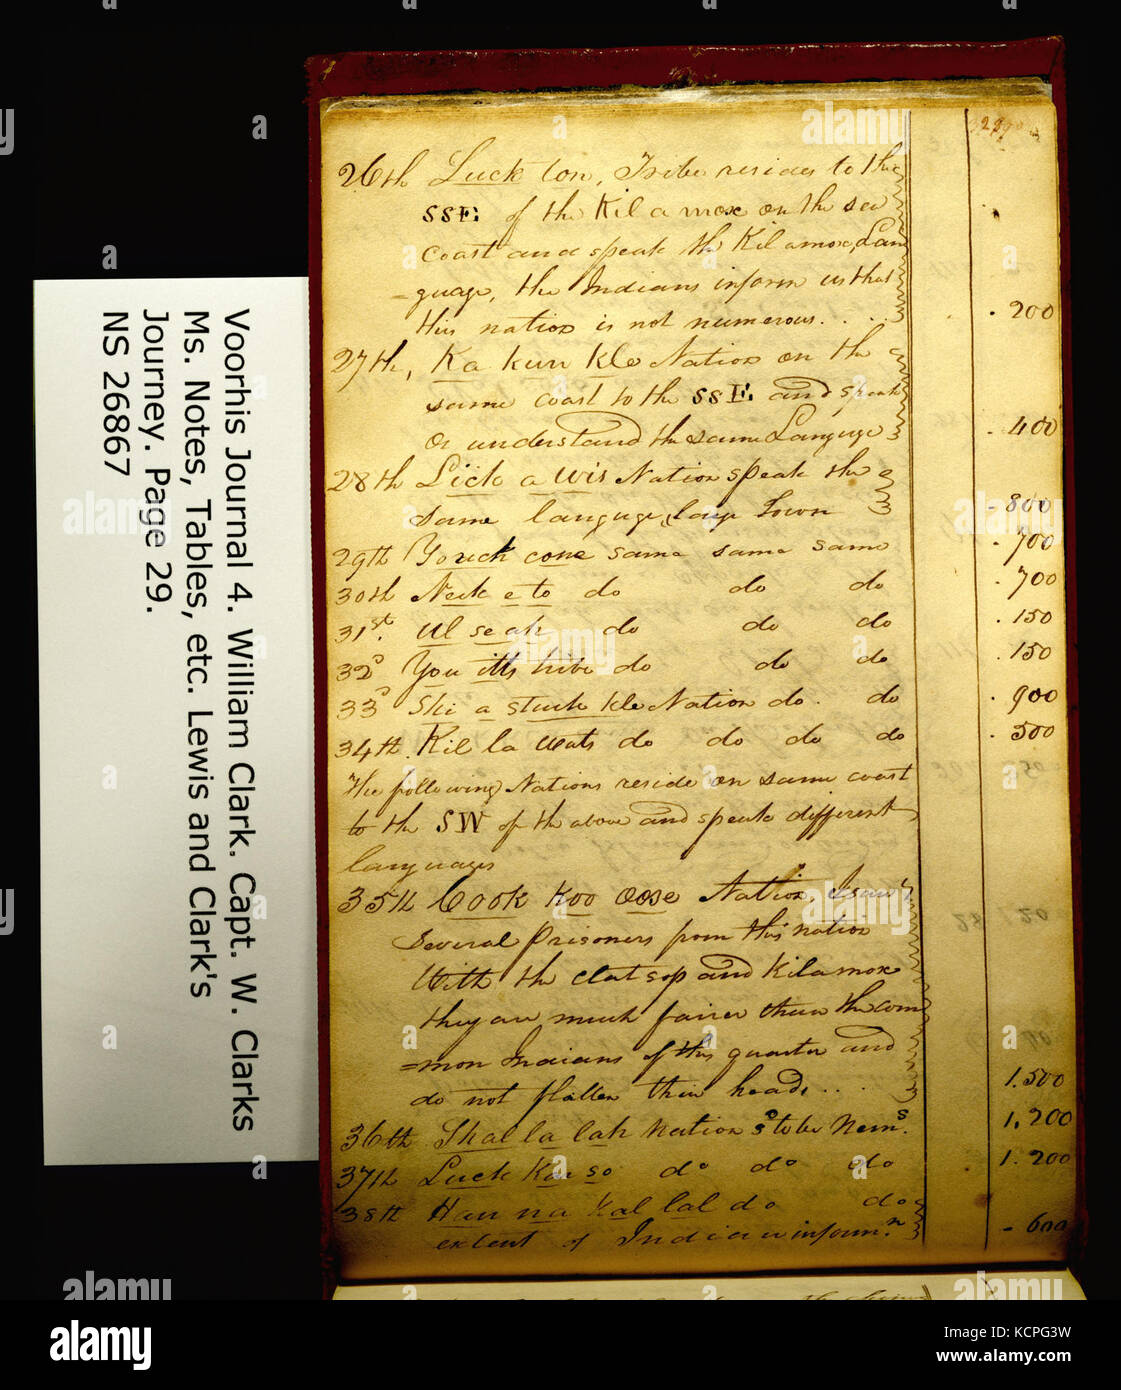 Voorhis Journal 4. William Clark. Capt. W. Clarks
Ms. Notes, Tables, etc. Lewis and Clark's
Journey. Page 29.
NS 26867
26th Luck ton, Tribe resides to the
SSE of the Kil a mox on the sea
coast and speak the Kil amox, Lan
=guage, the Indians inform us that
this nation is not numerous. . . . 200
27th, Ka kun kle Nation on the
same coast to the SSE and speak
or understand the same Languge . 400
28th Lick a wis Nation speak the
same languge, large Town - 800
29th Youick cone same same same . 700
30th Neck e to do do do . 700
31st. Ul se ah do do do . 150
32d You itts tribe do do do . 150
33d Shi a stuck kle Nation do. do . 900
34th. Kil la wats do do do do . 500
The following Nations reside on same coast
to the SW of the above and speak different
languages
35th Cook koo oose Nation, I saw
Several Prisoners from this nation
With the Clatsop and Kilamox
they are much fairer than the com
=mon Indians of this quarter and
do not flatten their heads . . . 1.500
36th Shal la lah Nation sd to be nems. 1,200
37th Luck kar so do do do 1. 200
38th Han na kal lal do do
extent of Indian informn. - 600
alamy
Image ID: KCPG3W
www.alamy.com